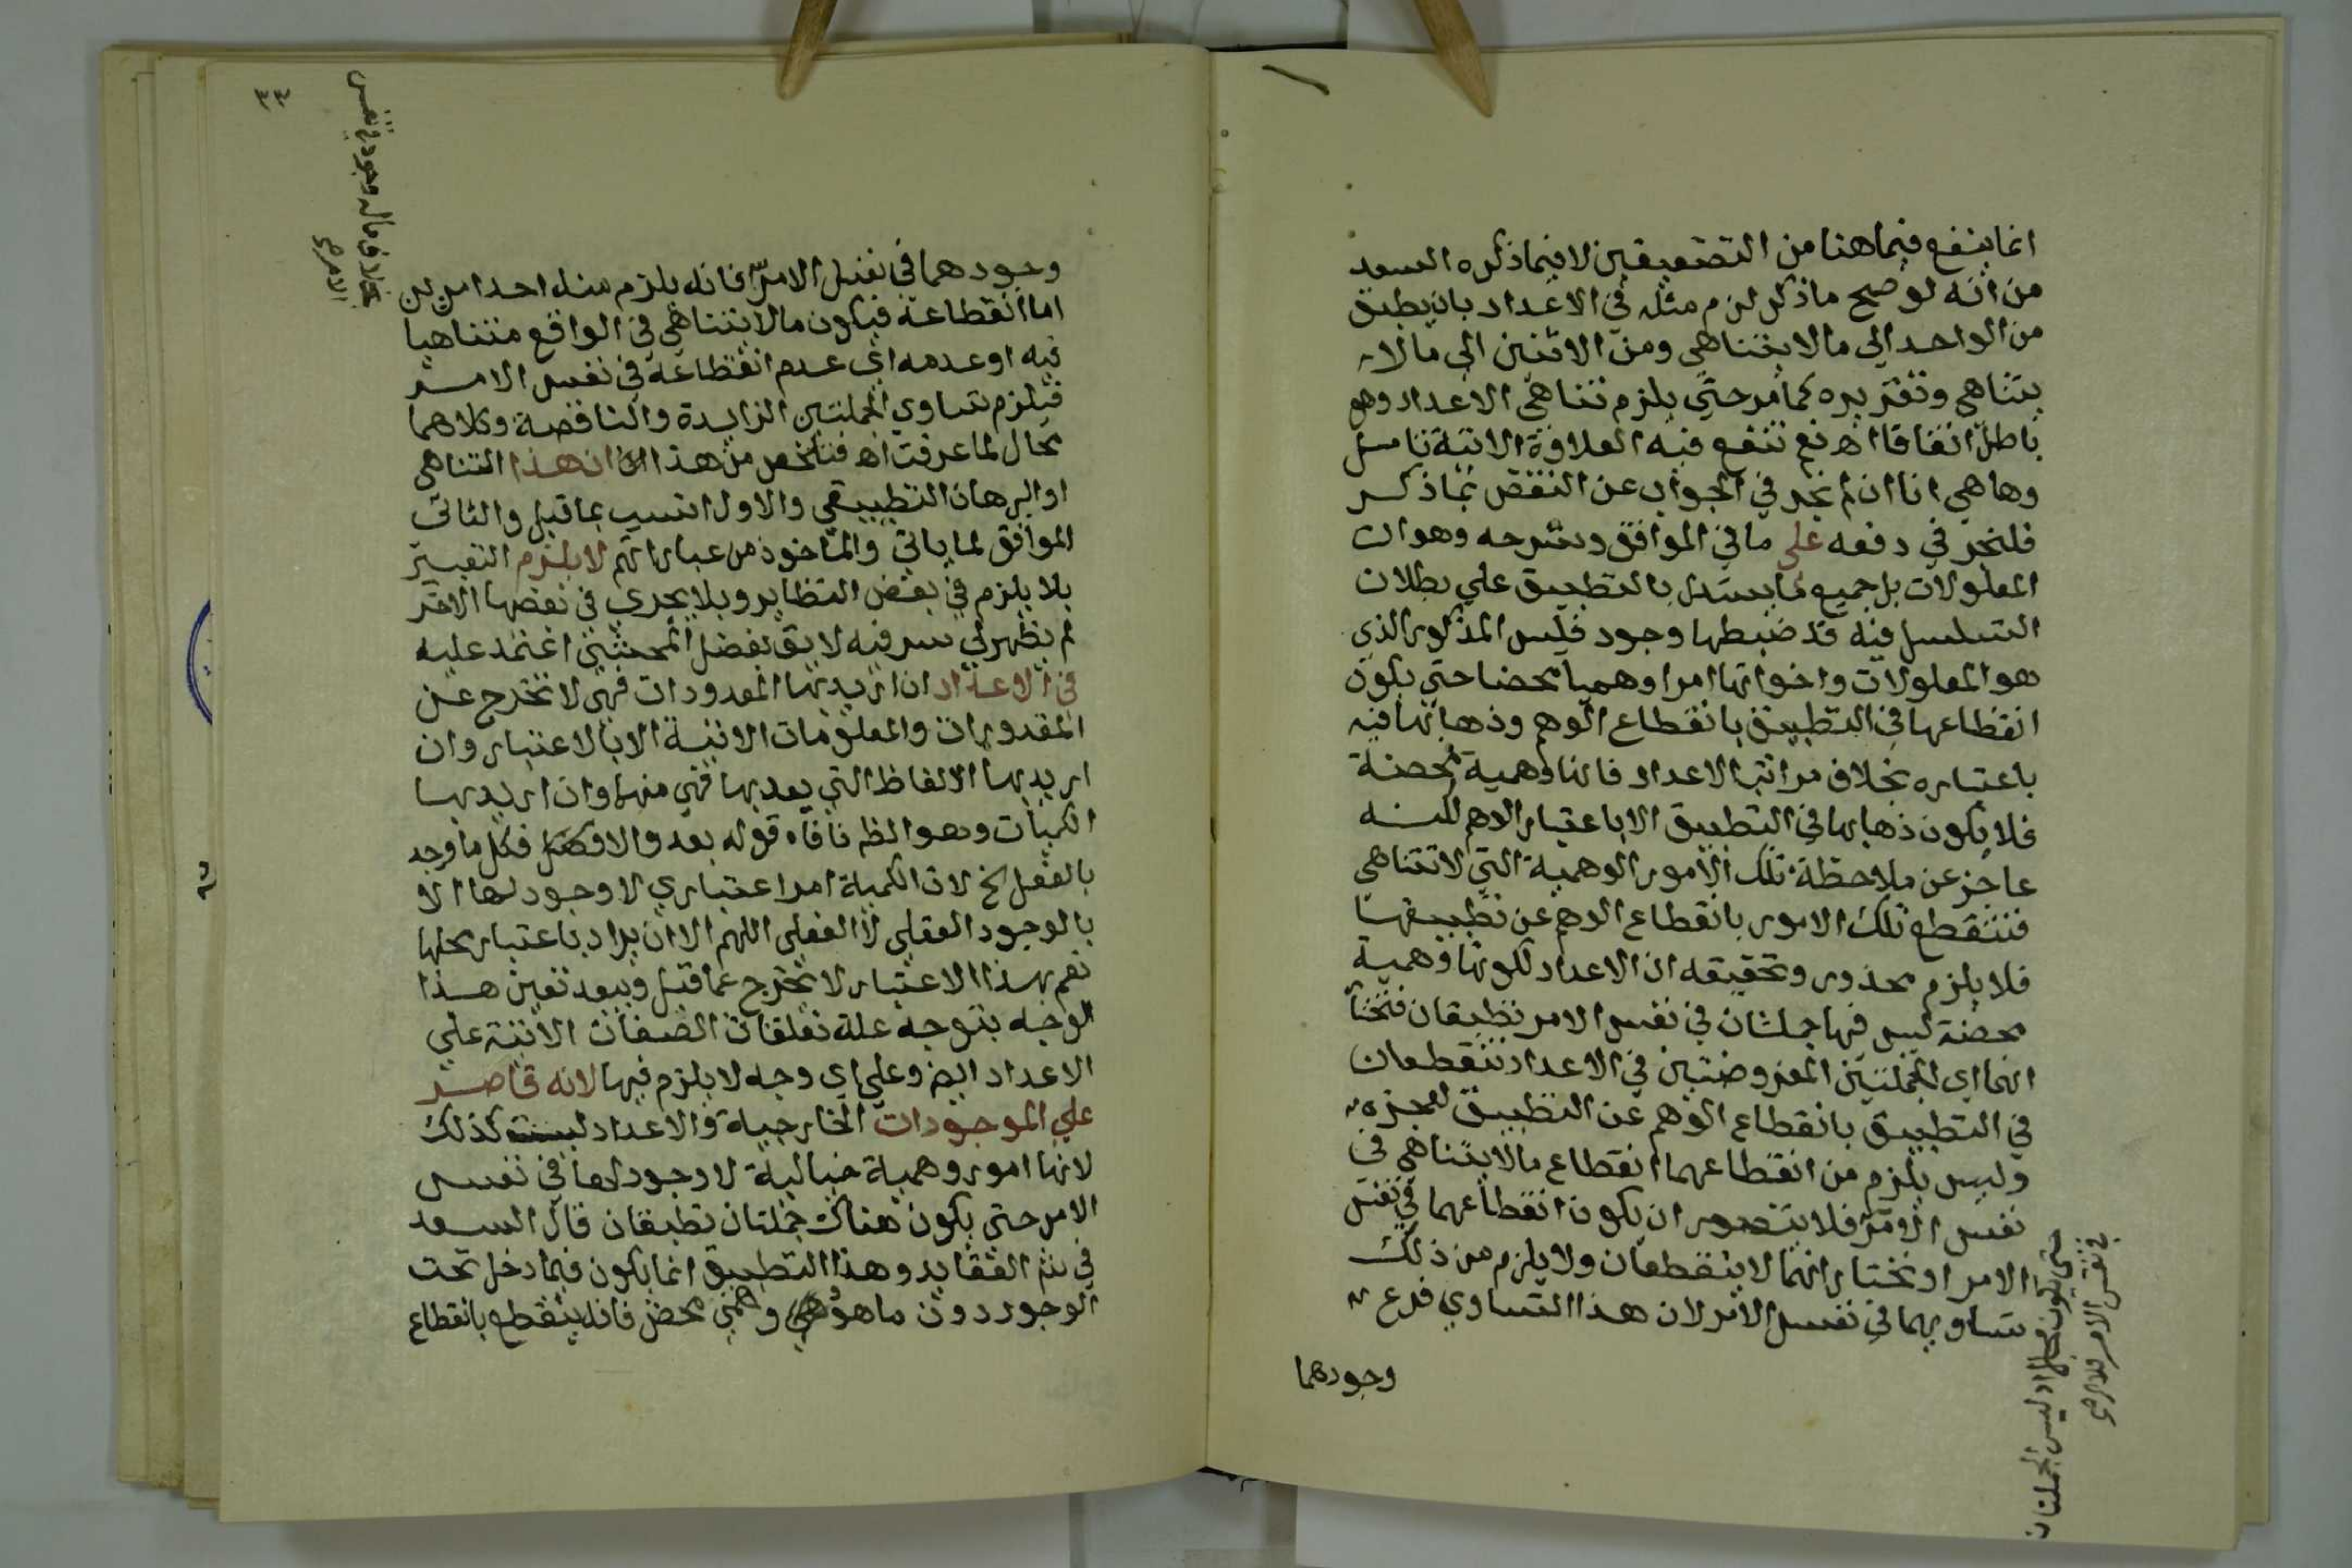 انما ينفع فيما هنا من التضعيفين لا فيما ذكره السعد
من انه لو صح ما ذكر لزم مثله في الاعداد بان يطبق
من الواحد الي ما لا يتناهي ومن الاثنين الي ما لا
يتناهي وتقريره كما مر حتي يلزم تناهي الاعداد وهو
باطل اتفاقا اه نع تنفع فيه العلاوة الاتية تامل
وها هي انا ان لم نجر في الجواب عن النقض بما ذكر
فلنجر في دفعه علي ما في المواقف وشرحه وهو ان
المعلولات بل جميع ما يستدل بالتطبيق علي بطلان
التسلسل فيه قد ضبطها وجود فليس المذكور الذي
هو المعلولات واخواتها امرا وهميا محضا حتي يكون
انقطاعها في التطبيق بانقطاع الوهم وذهابها فيه
باعتباره بخلاف مراتب الاعداد فانها وهمية محضة
فلا يكون ذهابها في التطبيق الا باعتبار الوهم لكنه
عاجز عن ملاحظة تلك الامور الوهمية التي لا تتناهي
فتنقطع تلك الامور بانقطاع الوهم عن تطبيقها
فلا يلزم محذور وتحقيقه ان الاعداد لكونها وهمية
محضة ليس فيها جملتان في نفس الامر تطبقان فنختا
انهما اي الجملتين المفروضتين في الاعداد تنقطعان
في التطبيق بانقطاع الوهم عن التطبيق لعجزه
وليس يلزم من انقطاعهما انقطاع ما لا يتناهي في
نفس الامر فلا يتصور ان يكون انقطاعهما في نفس
الامر او نختار انهما لا ينقطعان ولا يلزم من ذلك
تساويهما في نفس الامر لان هذا التساوي فرع
وجودهما
اذ ليس الجملتان
في نفس الامر
٣٣
بخلاف ماله وجود في نفس
الامر صح
وجودهما في نفس الامر فانه يلزم منه احد امرين
اما انقطاعه فيكون ما لا يتناهي في الواقع متناهيا
فيه او عدمه اي عدم انقطاعه في نفس الامر
فيلزم تساوي الجملتين الزايدة والناقصة وكلاهما
محال لما عرفت اه فتلخص من هذا ان هذا التناهي
او البرهان التطبيقي والاول انسب بما قبل والثاني
الموافق لما ياتي والماخوذ من عباراتهم لا يلزم التعبير
بلا يلزم في بعض النظاير وبلا يجري في بعضها الاخر
لم يظهر لي سر فيه لا يق بفضل المحشين اعتمد عليه
في الاعداد ان اريد بها المعدودات فهي لا تخرج عن
المقدورات والمعلومات الاتية الا بالاعتبار وان
اريد بها الالفاظ التي يعد بها فهي منها وان اريد بها
الكميات وهو الظ نافاه قوله بعد والا فكل ما وجد
بالفعل الخ لان الكمية امر اعتباري لا وجود لها الا
بالوجود العقلي لا الفعلي اللهم الا ان يراد باعتبار محلها
نعم بهذا الاعتبار لا تخرج عما قبل وبعد تعين هذا
الوجه يتوجه علة تعلقات الصفات الاتية علي
الاعداد ايض وعلي اي وجه لا يلزم فيها لانه قاصر
علي الموجودات الخارجية والاعداد ليست كذلك
لانها امور وهمية خيالية لا وجود لها في نفس
الامر حتي يكون هناك جملتان تطبقان قال السعد
في شر العقايد وهذا التطبيق انما يكون فيما دخل تحت
الوجود دون ما هو وهمي محض فانه ينقطع بانقطاع